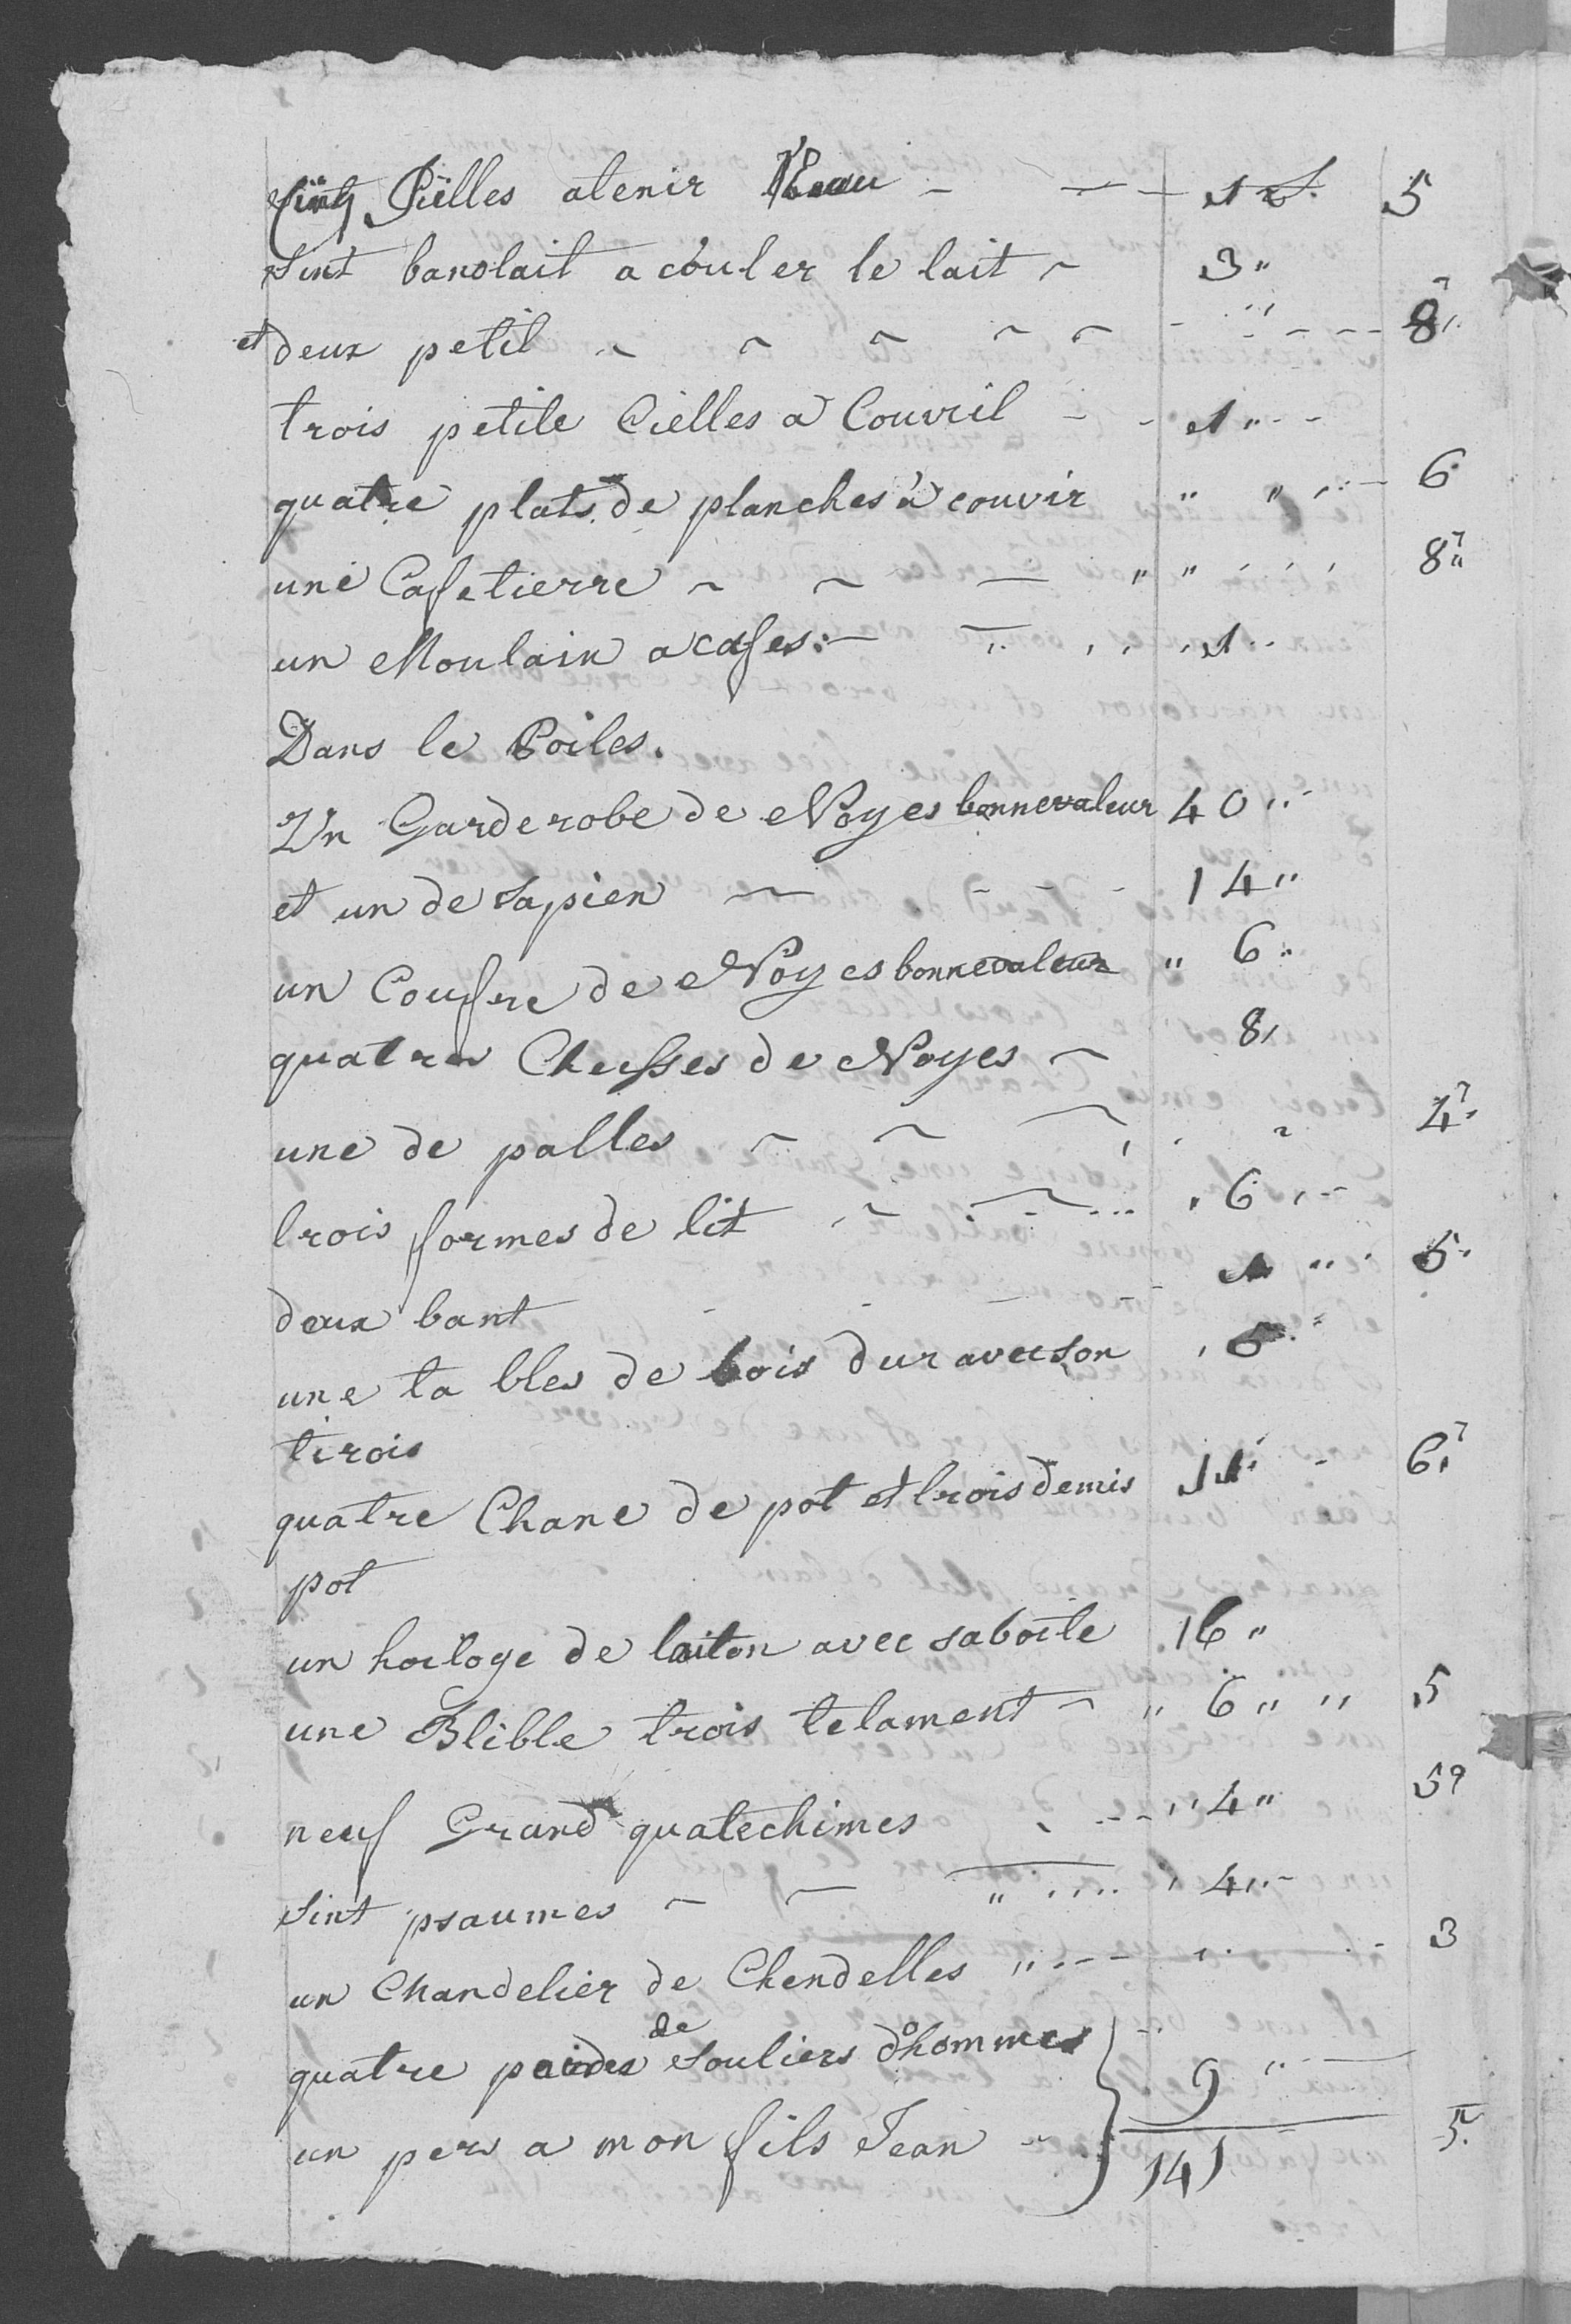 Cint Siëlles atenir l'Eau - - - 1 £. 5
Sint banolait a couler le lait ~ 3 "
et deux petit ~ ~ ~ ~ ~ - - - - 8
trois petite Ciëlles a Couvril - - 1 " - -
quatre plats de planches à couvir " " - 6
une Cafetierre ~ ~ — " " 8 "
un Moulain a cafes : - 1
Dans le Poiles.
Un Garderobe de Noyes bonne valeur 40 "
et un de sapien — - - - 14 "
un Coufre de Noyes bonne valeur " 6 "
quatres Chesses de Noyes ~ 8
une de palles ~ ~ ~ 4
trois formes de lit ~ ~ " 6 " -
deux bant - - - 1 " 5
une ta bles de bois dur avec son
tirois
quatre Chane de pot et trois demis 11 - 6
pot
un horloge de laiton avec sa boite 16 "
une Blible trois telament ~ " 6 " " 5
neuf Grand quatechimes - - " 4 " 5
Sint psaumes ~ ~ " 4 " -
un Chandelier de Chendelles " - - 3
quatre paires de Souliers d'hommes 9 "
un per a mon fils Jean - 141 5